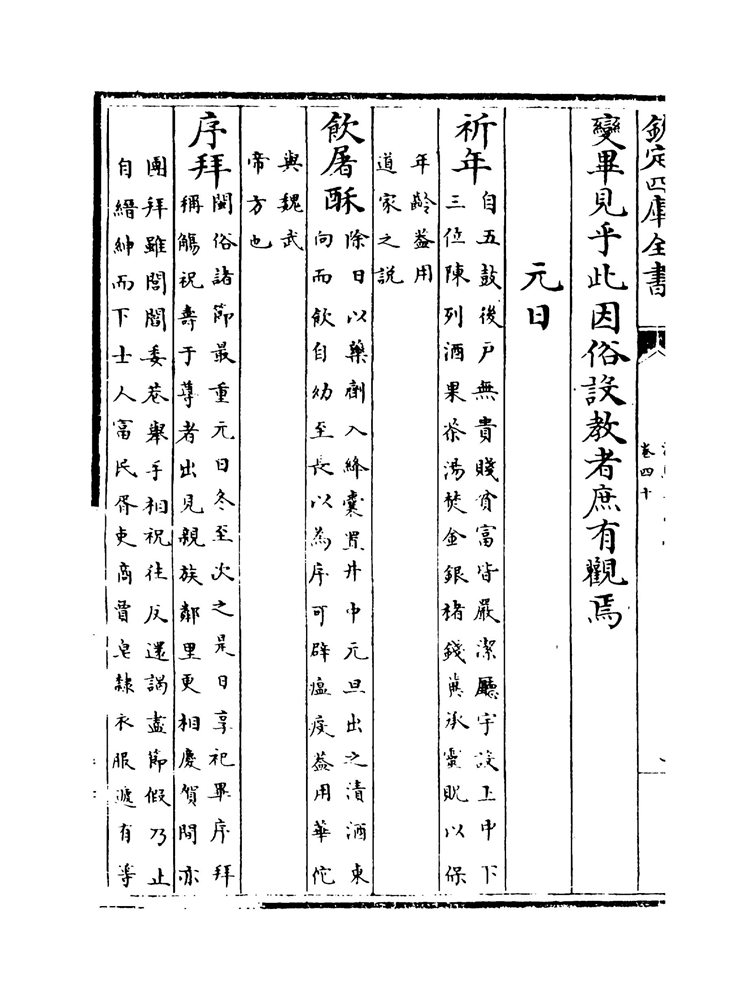 欽定四庫全書
卷四十
變畢見乎此因俗設教者庶有觀焉
元日
祈年
自五鼓後戶無貴賤貧富皆嚴潔廳宇設上中下
三位陳列酒果茶湯焚金銀楮錢冀承靈貺以保
年齡葢用
道家之說
飲屠酥
除日以藥劑入絳囊置井中元旦出之漬酒東
向而飲自幼至長以為序可辟瘟疫葢用華佗
與魏武
帝方也
序拜
閩俗諸節最重元日冬至次之是日享祀畢序拜
稱觴祝壽于尊者出見親族鄰里更相慶賀間亦
團拜雖閭閻委巷舉手相祝往反還謁盡節假乃止
自縉紳而下士人富民胥吏商賈皂隸衣服遞有等